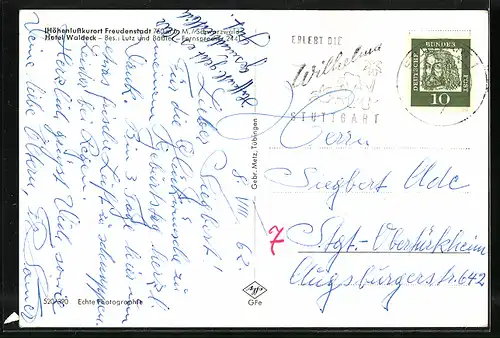 (Höhenluftkurort Freudenstadt 760 m ü. M./Schwarzwald
Hotel Waldeck – Bes.: Lutz und Bäßler – Fernsprecher 2441
8. VIII. 62.
Lieber Siegbert!
Für die Glückwünsche zu
meinem Geburtstag herzl.
Dank. Bin 3 Tage hier um
etwas frische Luft zu schnappen.
Leider bei Regen.
Herzlich grüsst Dich sowie
Deine liebe Eltern,
520/320 Echte Photographie
Gebr. Metz, Tübingen
Agfa
GFe
ERLEBT DIE
Wilhelma
STUTTGART
DEUTSCHE BUNDESPOST
10
Herrn
Siegbert Ude
7 Stgt.-Obertürkheim
Augsburgerstr. 642